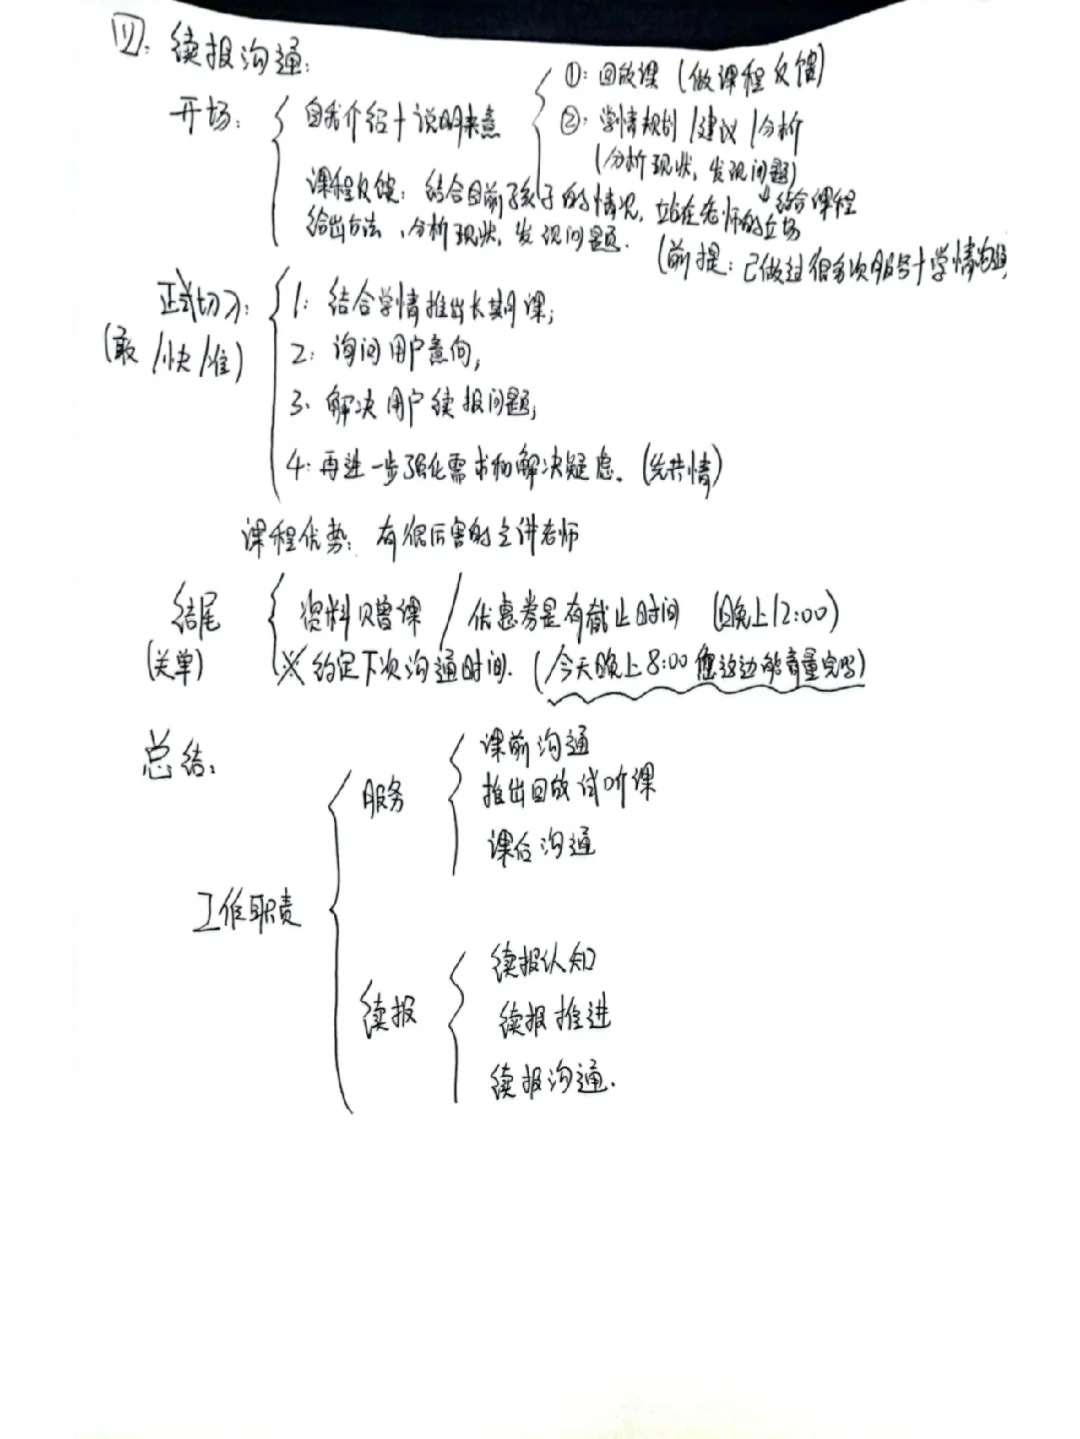 四、续报沟通：
开场：
自我介绍+说明来意
①：回放课（做课程反馈）
②：学情规划/建议/分析
（分析现状，发现问题）
↓结合课程
课程反馈：结合目前孩子的情况，站在老师的立场
给出方法、分析现状，发现问题.
（前提：已做过很多次服务+学情沟通
正式切入：
（敢/快/准）
1：结合学情推出长期课；
2：询问用户意向；
3、解决用户续报问题；
4：再进一步强化需求和解决疑虑.（先共情）
课程优势：有很厉害的主讲老师
结尾
（关单）
资料赠课/优惠券是有截止时间（晚上12:00）
※约定下次沟通时间.（今天晚上8:00您这边能商量完吗）
总结：
工作职责
服务
课前沟通
推出回放试听课
课后沟通
续报
续报认知
续报推进
续报沟通.